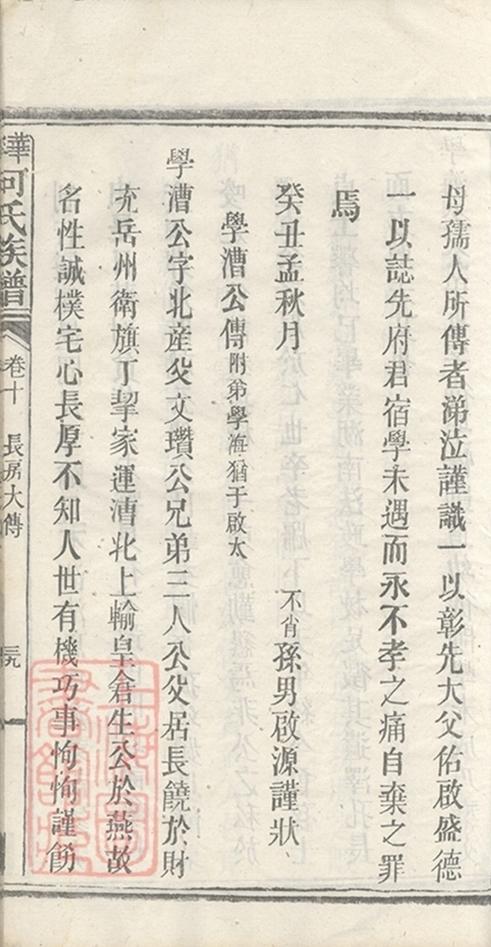 母孺人所傳者涕泣謹識一以彰先大父佑啟盛德
一以誌先府君宿學未遇而永不孝之痛自棄之罪
焉
癸丑孟秋月　不肖孫男啟源謹狀
學漕公傳附弟學海猶于啟太
學漕公字北産父文瓚公兄弟三人公父居長饒於財
充岳州衛旗丁挈家運漕北上輸皇倉生公於燕故
名性誠樸宅心長厚不知人世有機巧事恂恂謹飭
華何氏族譜　卷十　長房大傳　三九